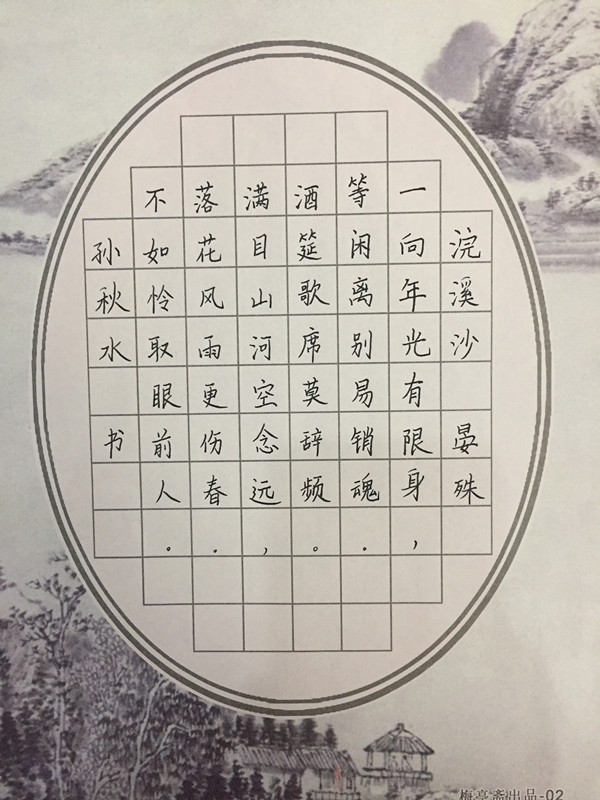 浣溪沙 晏殊
一向年光有限身，
等闲离别易销魂.
酒筵歌席莫辞频。
满目山河空念远，
落花风雨更伤春.
不如怜取眼前人。
孙秋水 书
梅亭斋出品-02